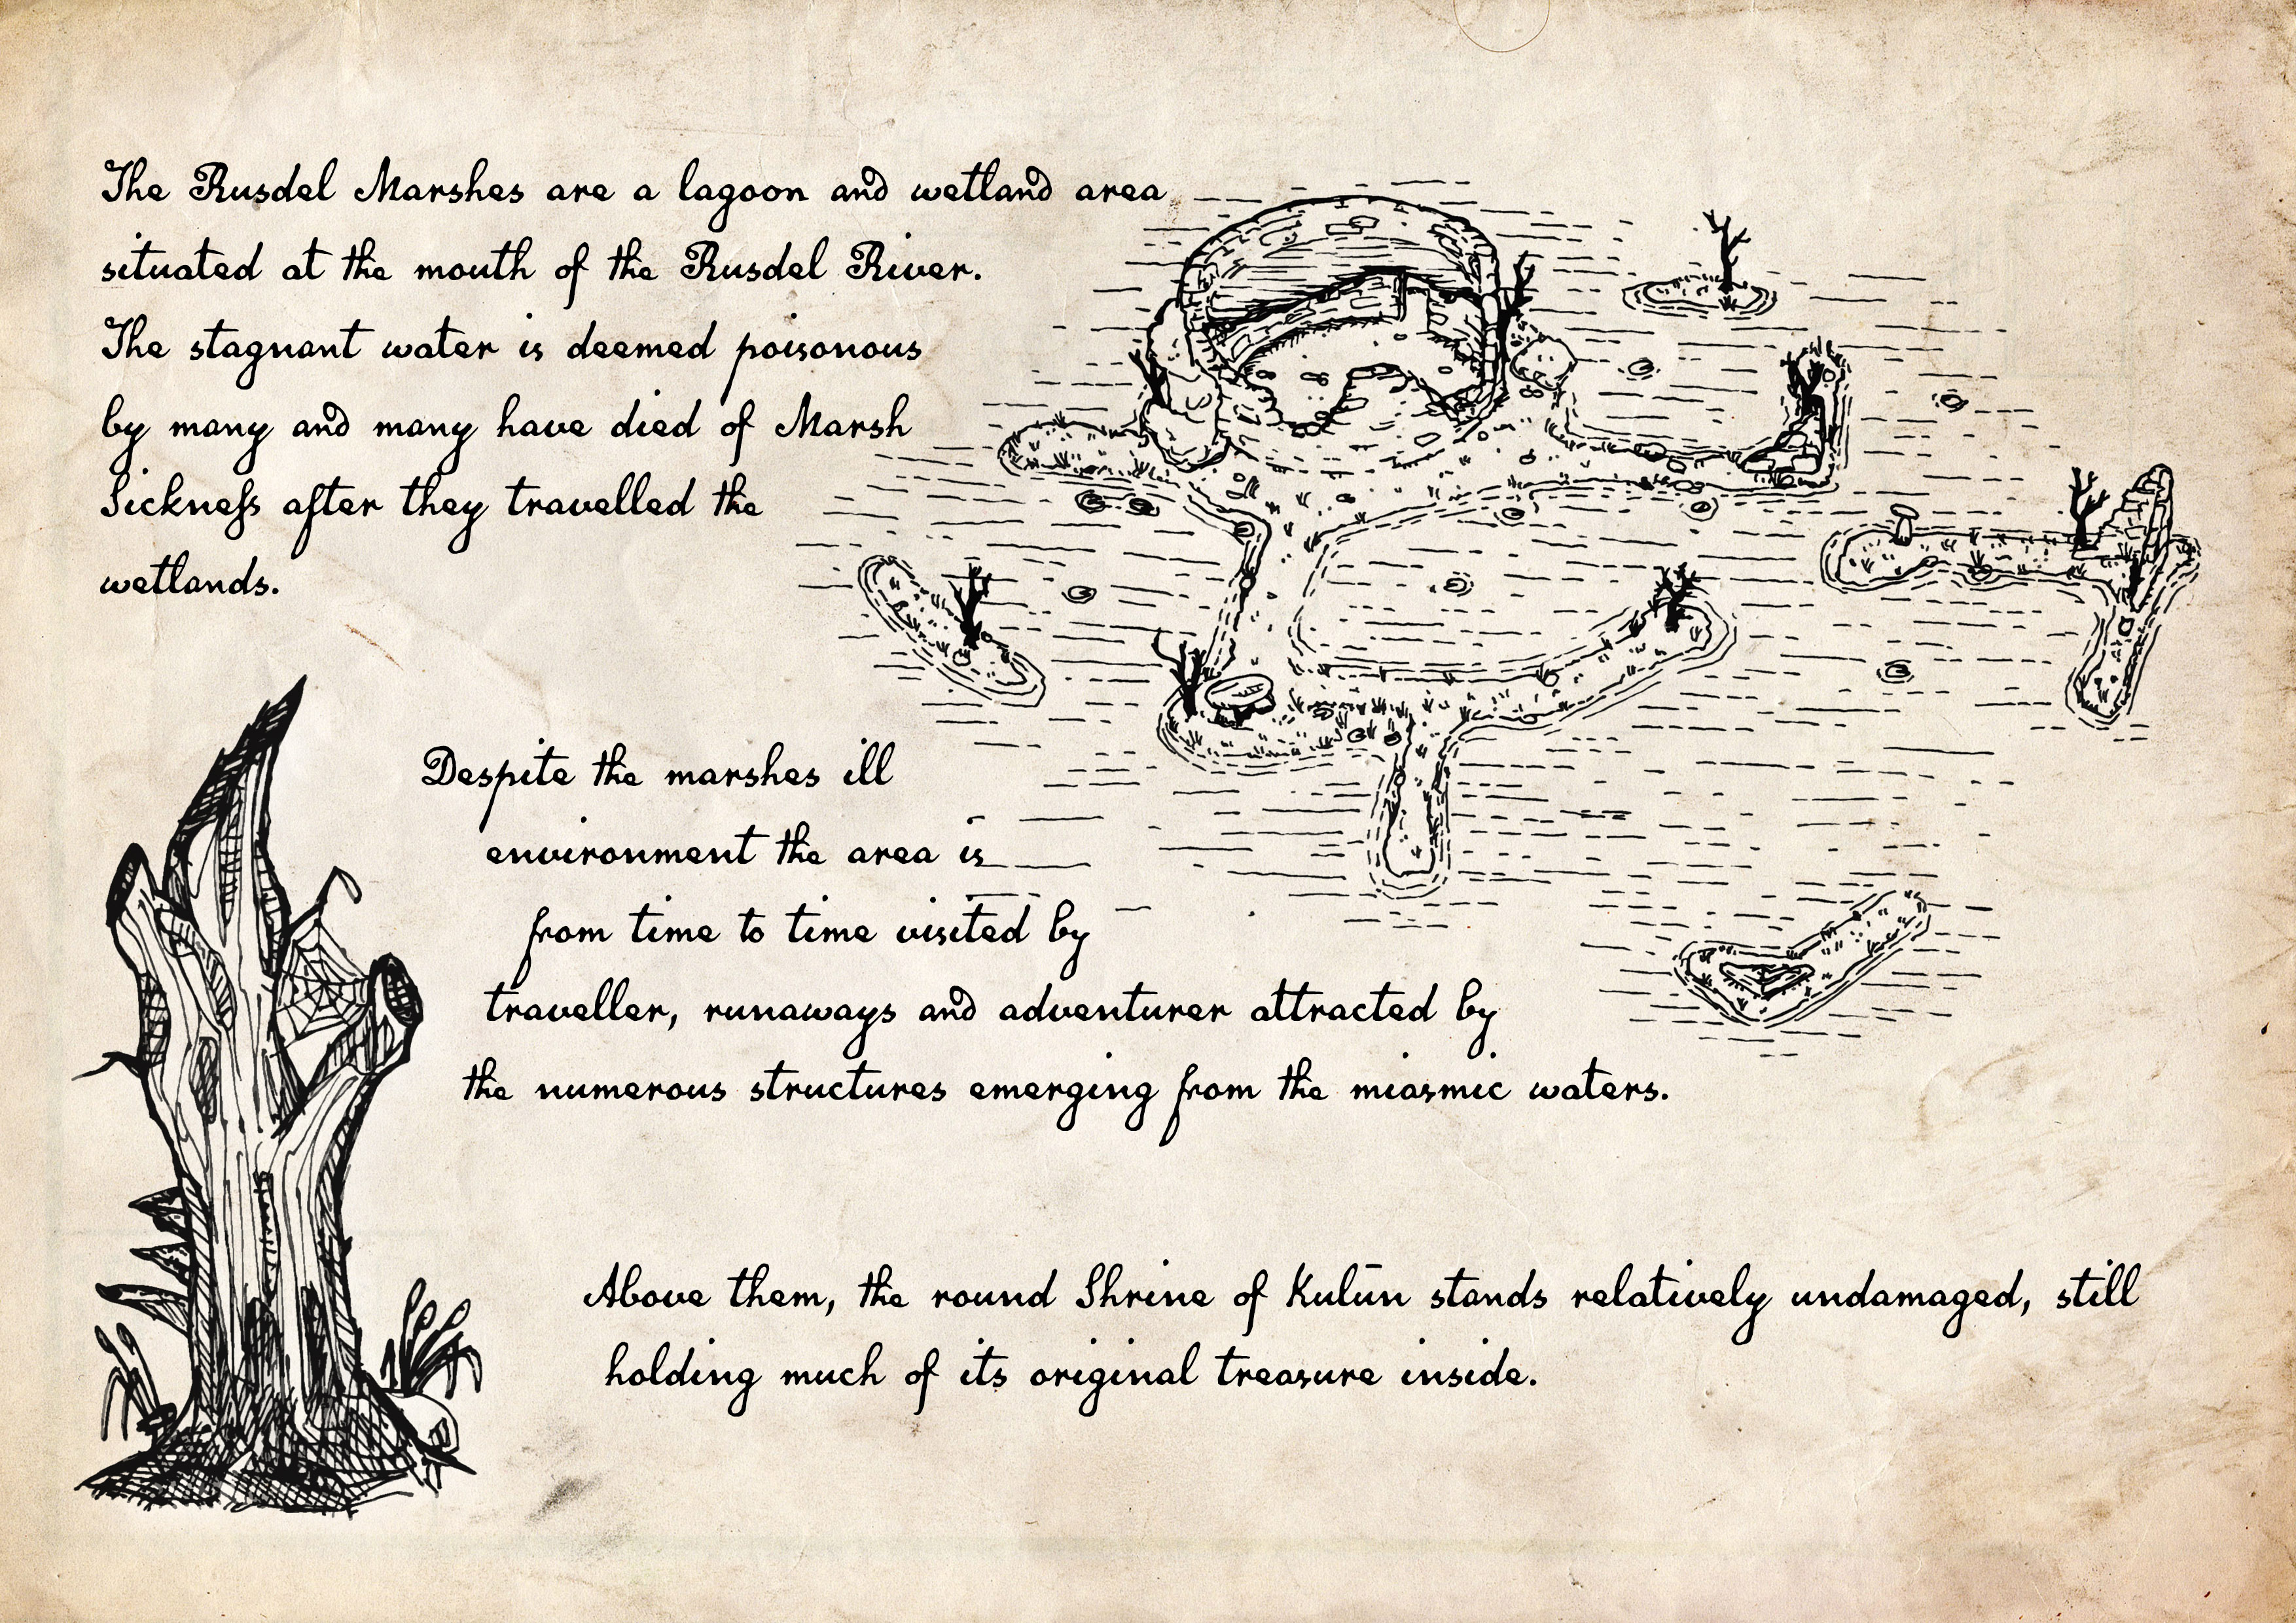 The Rusdel Marshes are a lagoon and wetland area
situated at the mouth of the Rusdel River.
The stagnant water is deemed poisonous
by many and many have died of Marsh
Sickneſs after they travelled the
wetlands.
Despite the marshes ill
environment the area is
from time to time visited by
traveller, runaways and adventurer attracted by
the numerous structures emerging from the miasmic waters.
Above them, the round Shrine of Kulūn stands relatively undamaged, still
holding much of its original treasure inside.